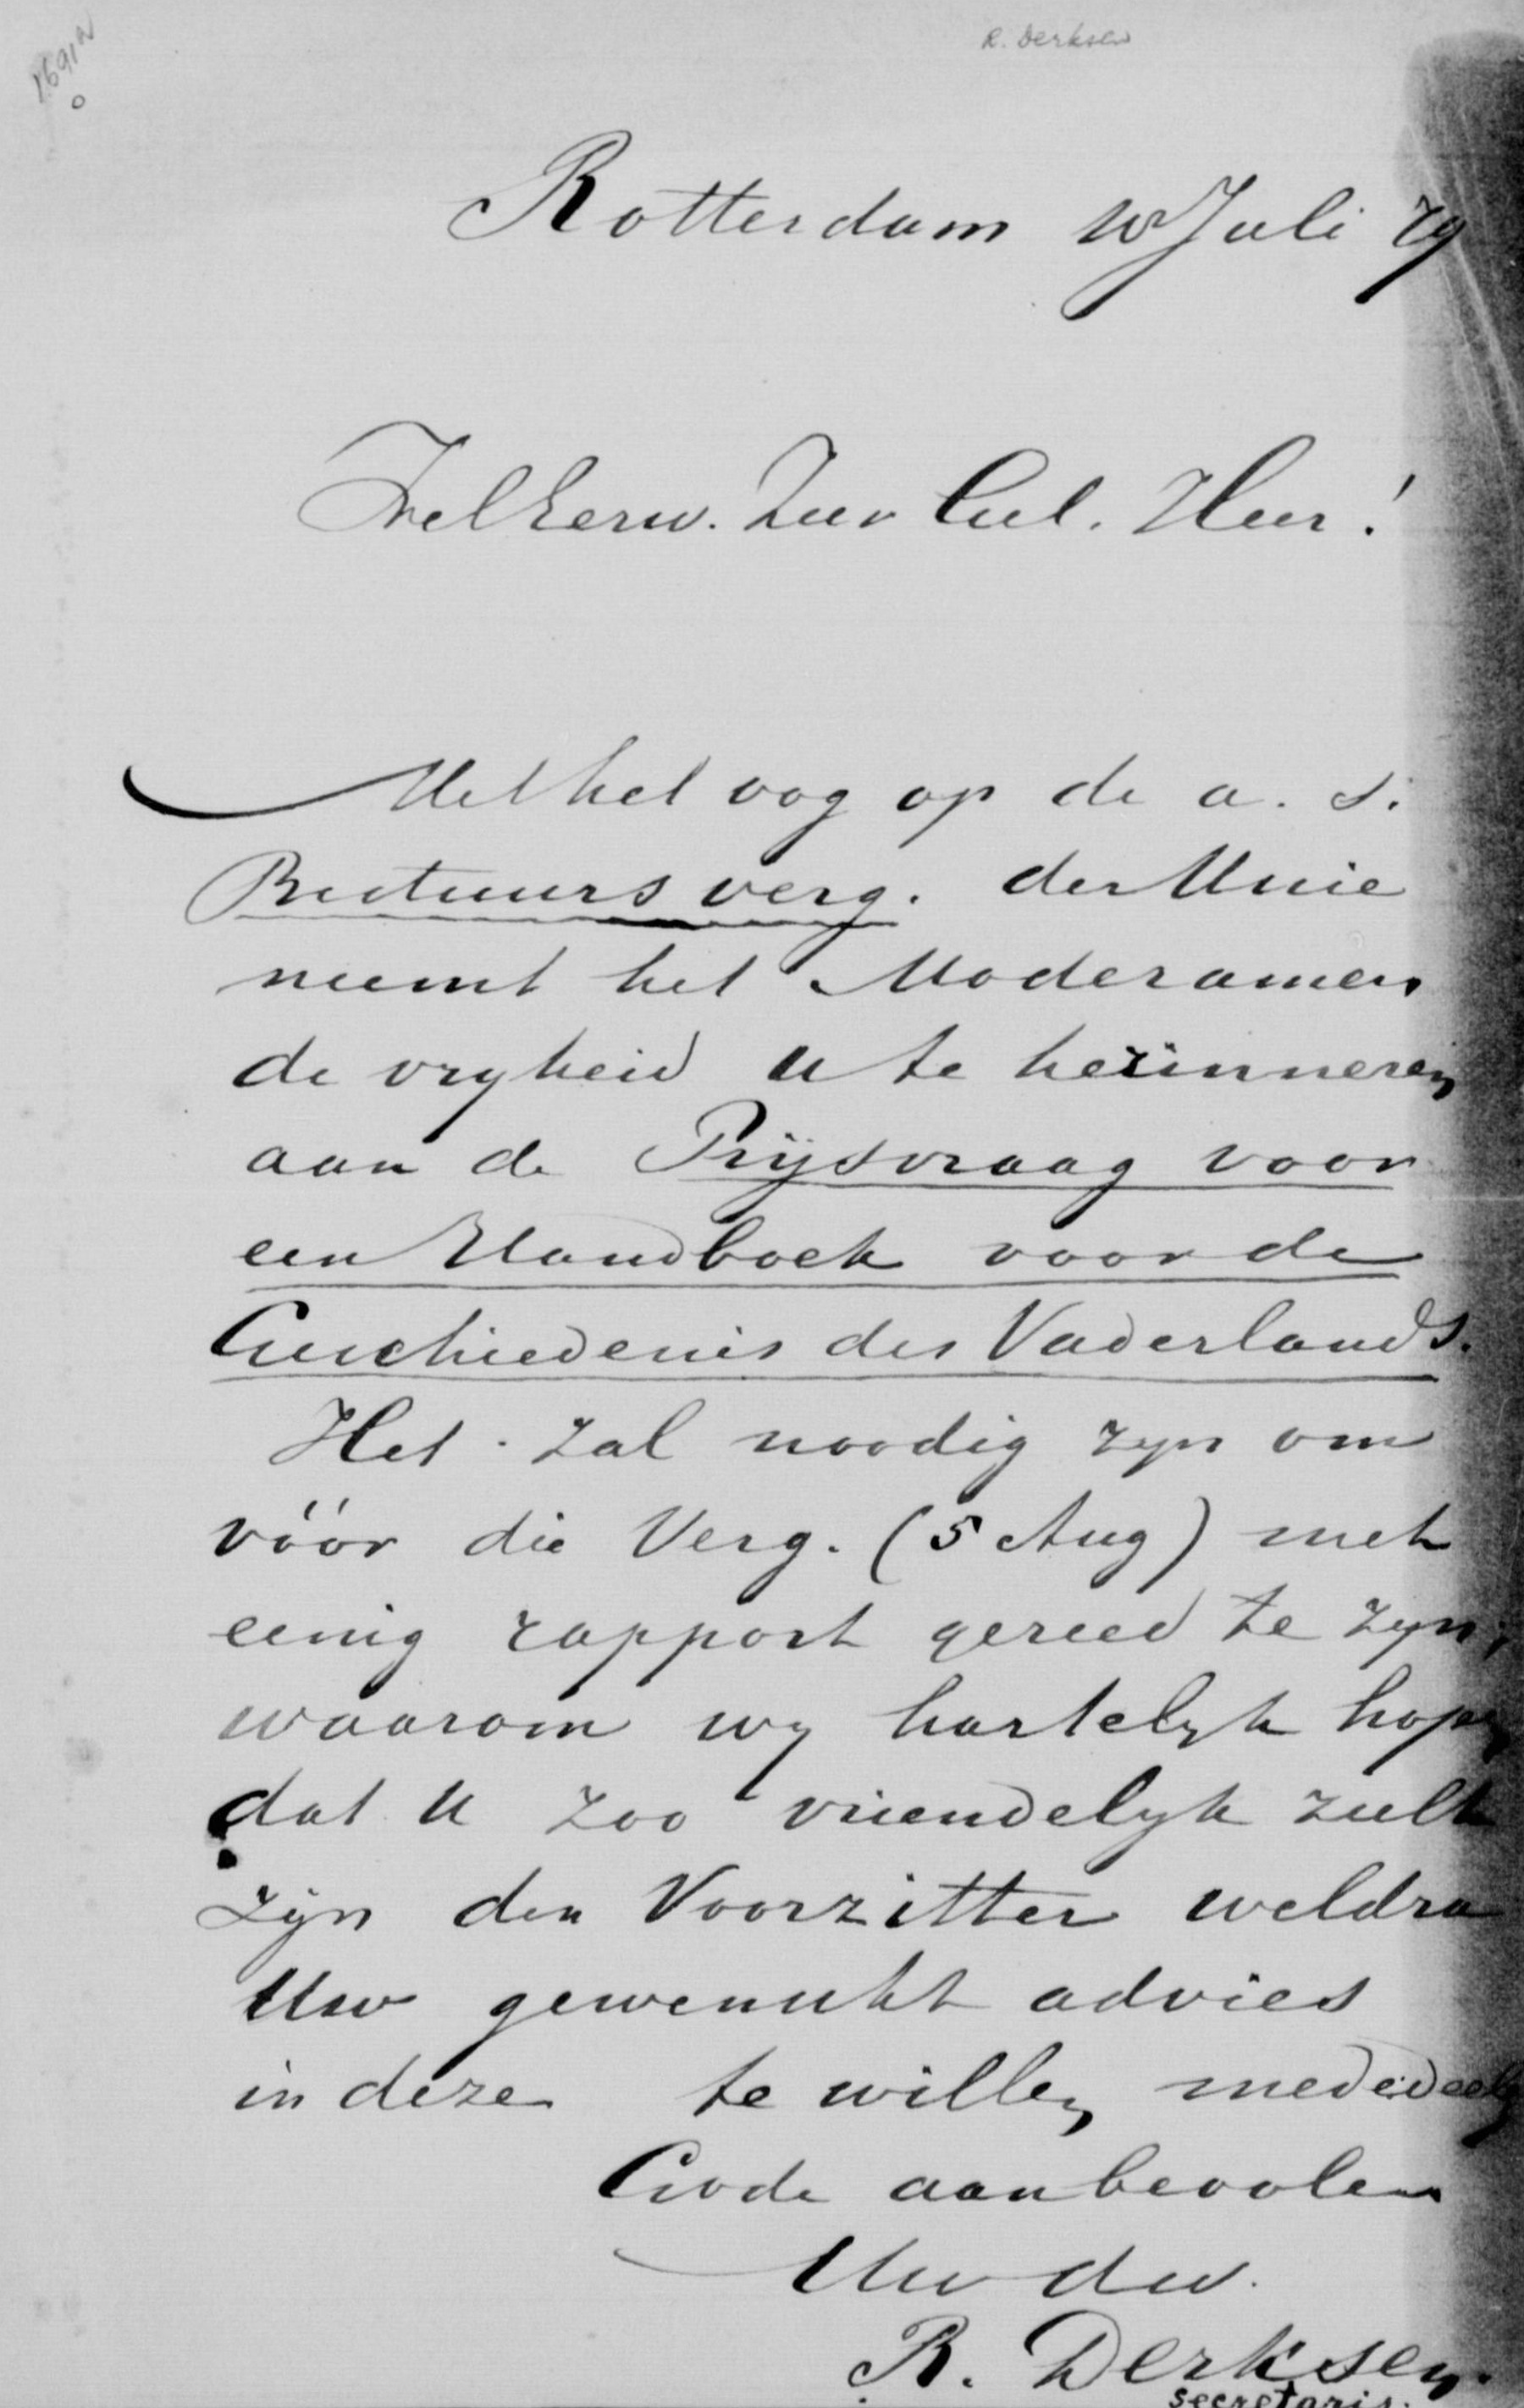 R. Derksen
1691N
Rotterdam 10 Juli 79
WelEerw. Zeer Gel. Heer!
Met het oog op de a. s.
Bestuursverg. der Unie
neemt het Moderamen
de vryheid U te herinneren
aan de Prijsvraag voor
een Handboek voor de
Geschiedenis des Vaderlands.
Het zal noodig zyn om
vóór die Verg. (5 Aug) met
eenig rapport gereed te zyn;
waarom wy hartelyk hopen
dat U zoo vriendelyk zult
zijn den Voorzitter weldra
Uw gewenscht advies
in deze te willen mededeelen
Gode aanbevolen
Uw dw.
R. Derksen.
secretaris.